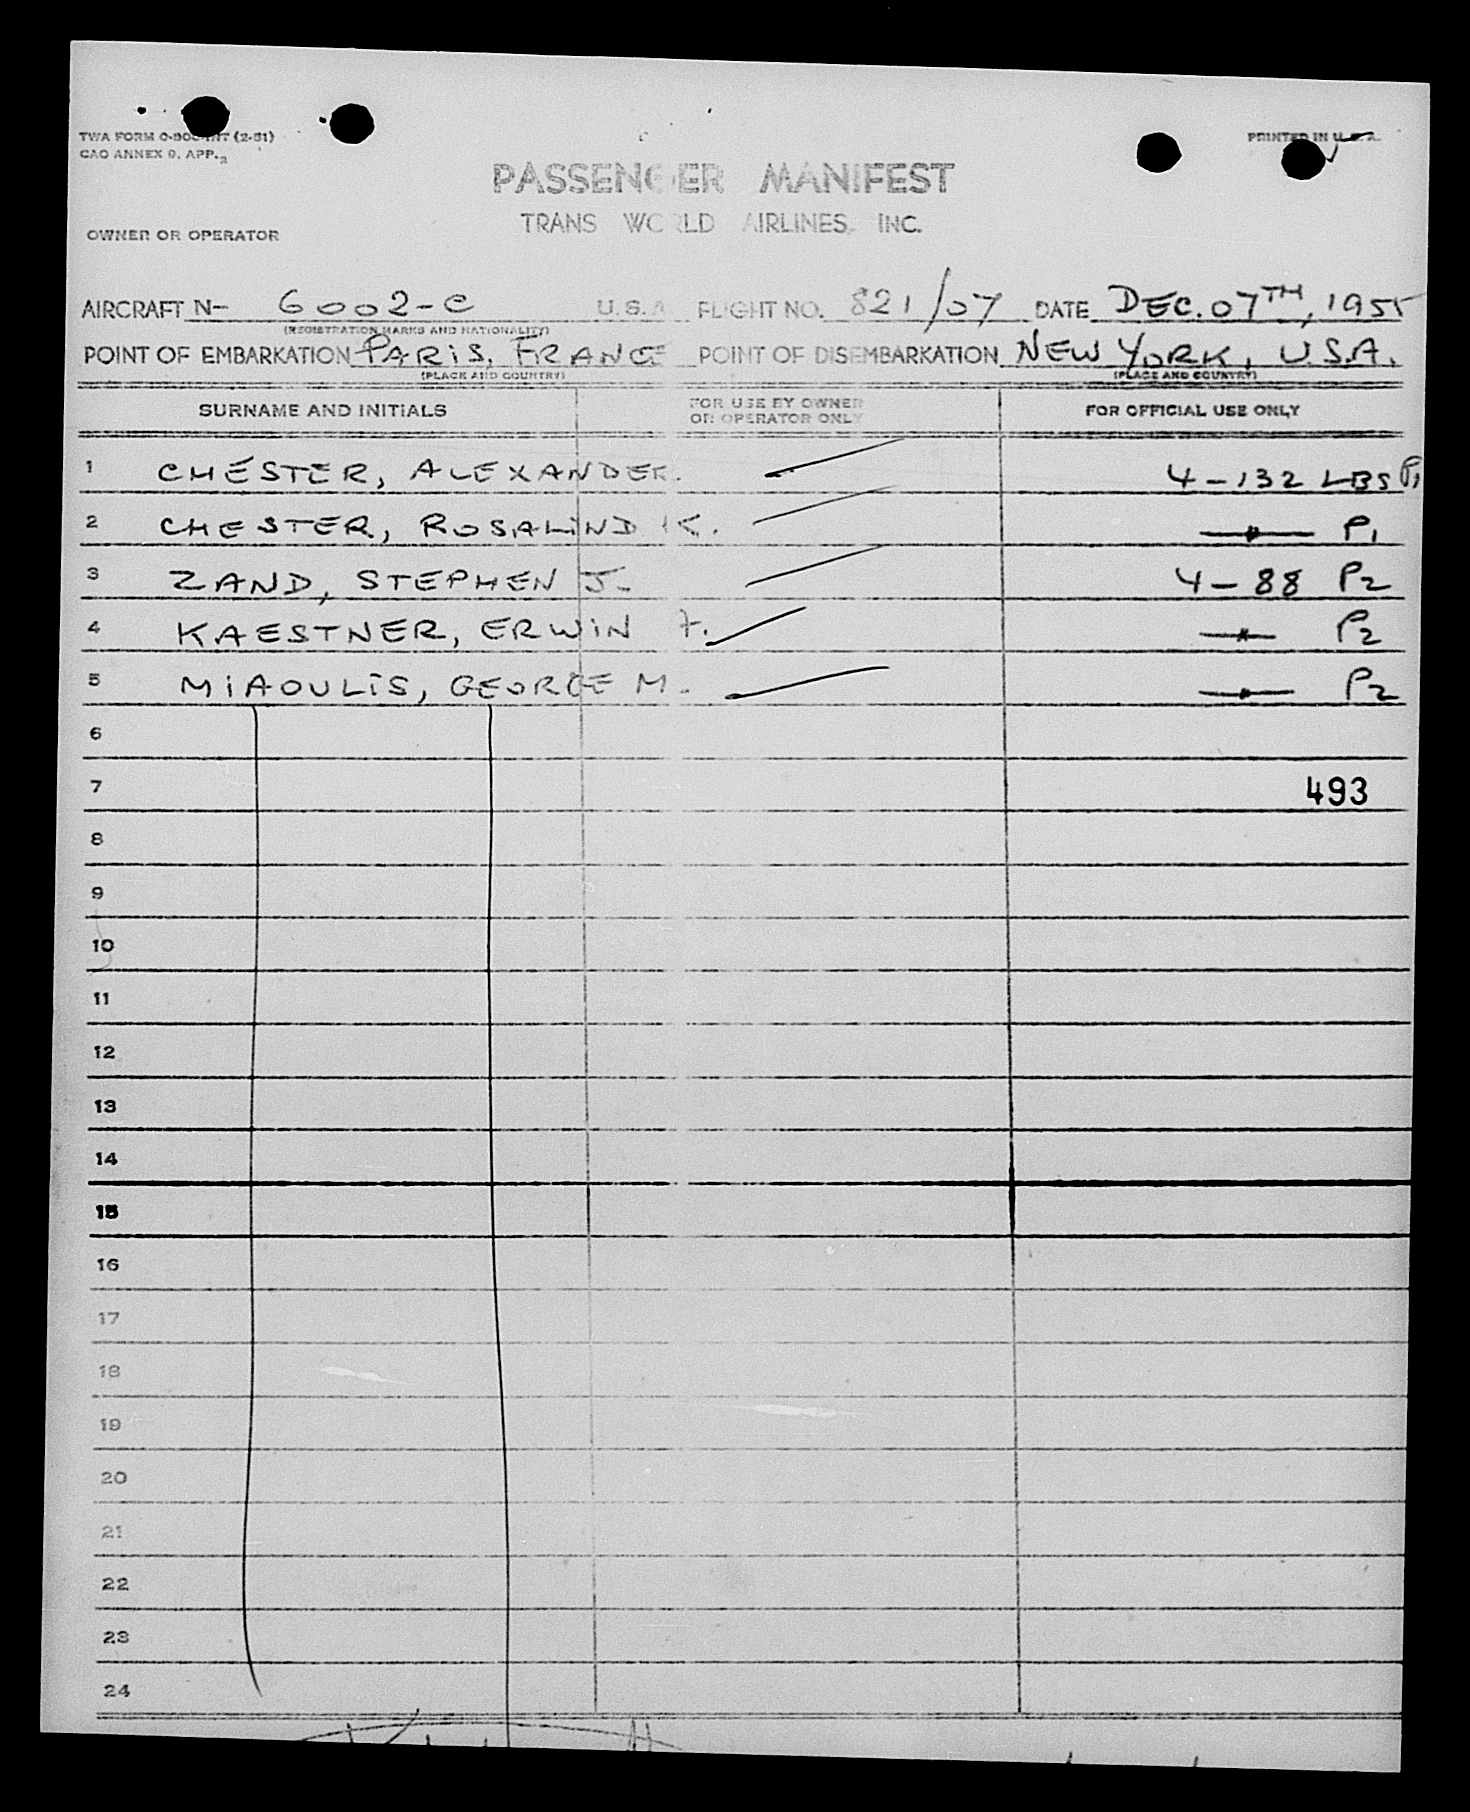 TWA FORM (2-51)
PRINTED IN U.S.A.
CAO ANNEX 9, APP. 2
PASSENGER MANIFEST
TRANS WORLD AIRLINES, INC.
OWNER OR OPERATOR
AIRCRAFT N- 6002-C U.S.A FLIGHT NO. 821/07 DATE DEC. 07TH, 1955
(REGISTRATION MARKS AND NATIONALITY)
POINT OF EMBARKATION PARIS, FRANCE POINT OF DISEMBARKATION NEW YORK, U.S.A.
(PLACE AND COUNTRY) (PLACE AND COUNTRY)
SURNAME AND INITIALS FOR USE BY OWNER OR OPERATOR ONLY FOR OFFICIAL USE ONLY
1 CHESTER, ALEXANDER. 4-132 LBS P1
2 CHESTER, ROSALIND K. P1
3 ZAND, STEPHEN J. 4-88 P2
4 KAESTNER, ERWIN F. P2
5 MIAOULIS, GEORGE M. P2
6
7 493
8
9
10
11
12
13
14
15
16
17
18
19
20
21
22
23
24